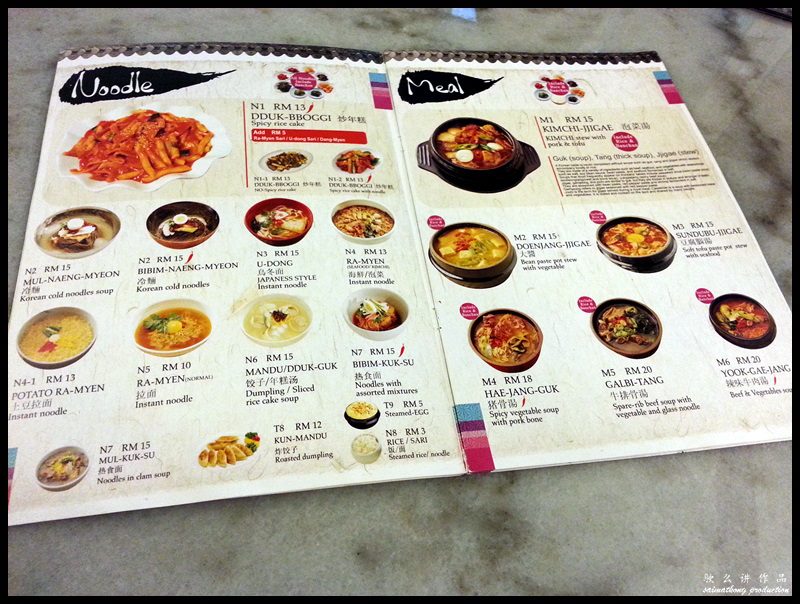 Noodle
All Noodle
Include
Banchan
N1 RM 13
DDUK-BBOGGI 炒年糕
Spicy rice cake
Add RM 5
Ra-Myen Sari / U-dong Sari / Dang-Myen
N1-1 RM 13
DDUK-BBOGGI 炒年糕
NO-Spicy rice cake
N1-2 RM 15
DDUK-BBOGGI 炒年糕
Spicy rice cake with noodle
N2 RM 15
MUL-NAENG-MYEON
冷麵
Korean cold noodles soup
N2 RM 15
BIBIM-NAENG-MYEON
冷麵
Korean cold noodles
N3 RM 15
U-DONG
烏冬面
JAPANESS STYLE
Instant noodle
N4 RM 13
RA-MYEN
(SEAFOOD/ KIMCHI)
海鮮/泡菜
Instant noodle
N4-1 RM 13
POTATO RA-MYEN
土豆拉面
Instant noodle
N5 RM 10
RA-MYEN(NORMAL)
拉面
Instant noodle
N6 RM 15
MANDU/DDUK-GUK
饺子/年糕汤
Dumpling / Sliced
rice cake soup
N7 RM 15
BIBIM-KUK-SU
熱食面
Noodles with
assorted mixtures
T9 RM 5
Steamed-EGG
N7 RM 15
MUL-KUK-SU
熱食面
Noodles in clam soup
T8 RM 12
KUN-MANDU
炸饺子
Roasted dumpling
N8 RM 3
RICE / SARI
饭/面
Steamed rice/ noodle
Meal
Include
Rice &
Banchan
M1 RM 15
KIMCHI-JJIGAE 泡菜湯
KIMCHI stew with
pork & tofu
Include
Rice &
Banchan
Guk (soup), Tang (thick soup), Jjigae (stew)
Include
Rice & Banchan
M2 RM 15
DOENJANG-JJIGAE
大醬
Bean paste pot stew
with vegetable
Include
Rice & Banchan
M3 RM 15
SUNDUBU-JJIGAE
豆腐腦湯
Soft tofu paste pot stew
with seafood
Include
Rice & Banchan
M4 RM 18
HAE-JANG-GUK
猪骨湯
Spicy vegetable soup
with pork bone
Include
Rice & Banchan
M5 RM 20
GALBI-TANG
牛排骨湯
Spare-rib beef soup with
vegetable and glass noodle
Include
Rice & Banchan
M6 RM 20
YOOK-GAE-JANG
辣味牛肉湯
Beef & Vegetables soup
耿么讲作品
saimatkong production